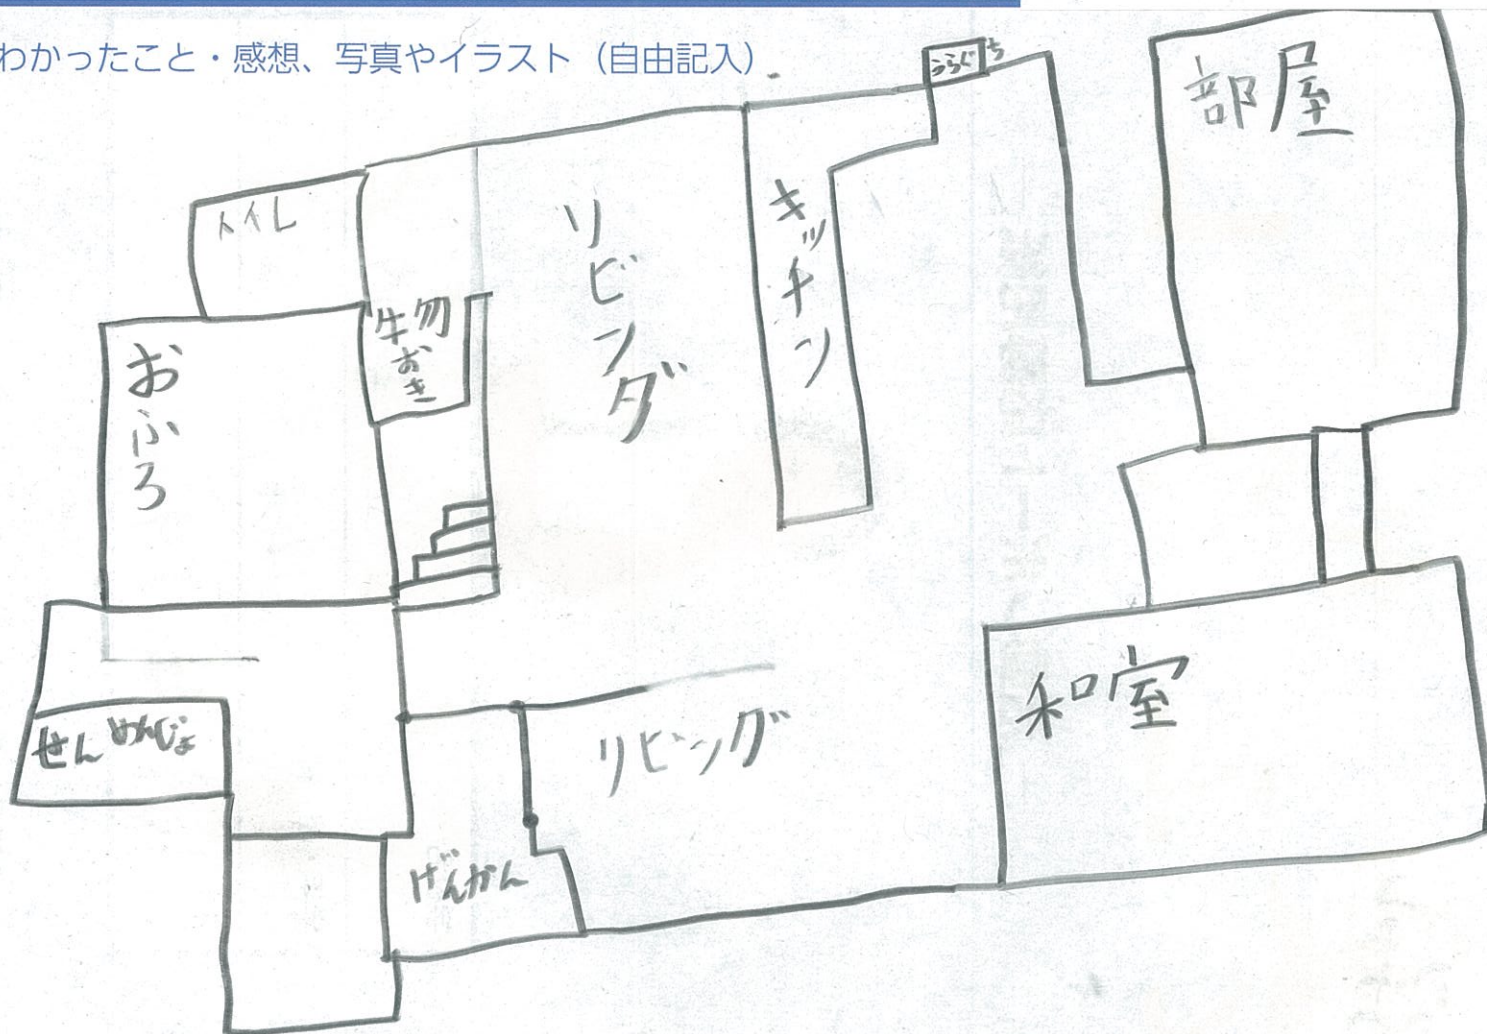 わかったこと・感想、写真やイラスト（自由記入）
うらぐち
部屋
トイレ
リビング
キッチン
物おき
おふろ
和室
せんめんじょ
リビング
げんかん